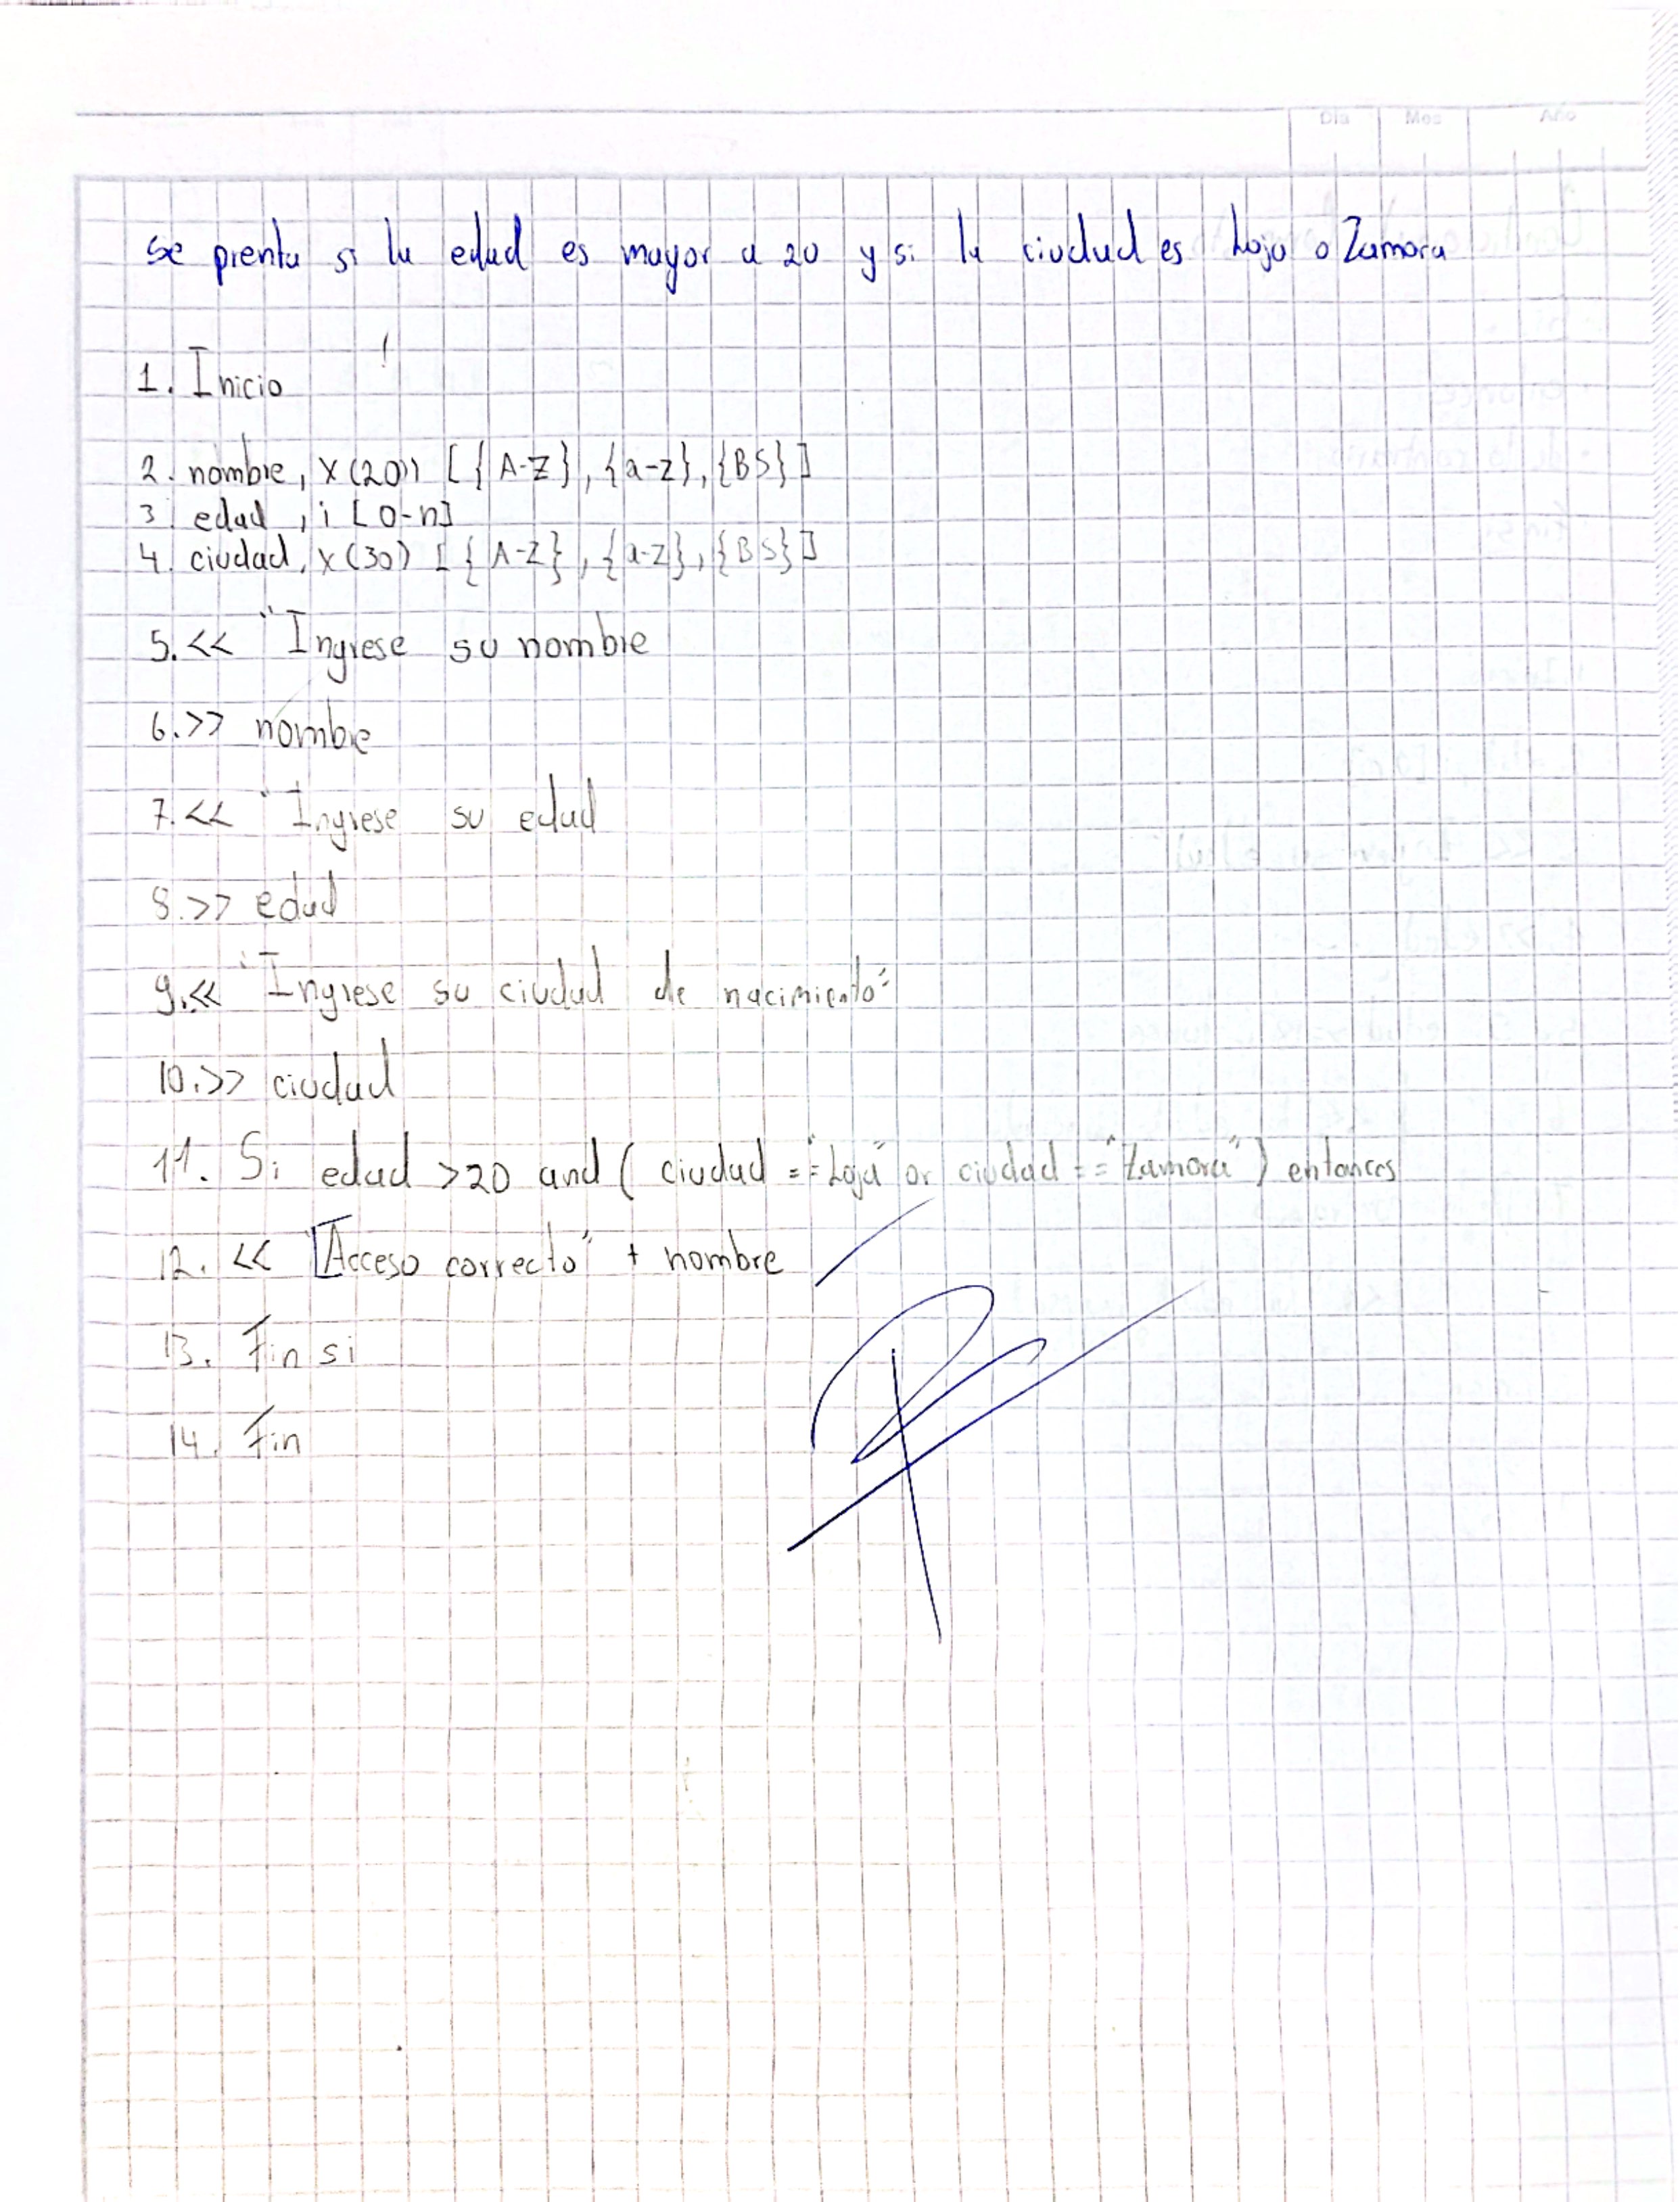 Día Mes Año
se prenta si la edad es mayor a 20 y si la ciudad es Loja o Zamora
!
1. Inicio
2. nombre, x(20) [{A-Z},{a-z},{BS}]
3. edad, i [0-n]
4. ciudad, x(30) [{A-Z},{a-z},{BS}]
5.<< "Ingrese su nombre
6.>> nombre
7.<< "Ingrese su edad
8.>> edad
9.<< "Ingrese su ciudad de nacimiento"
10.>> ciudad
11. Si edad >20 and ( ciudad == "Loja" or ciudad == "Zamora") entonces
12. << "Acceso correcto" + nombre
13. Fin si
14. Fin